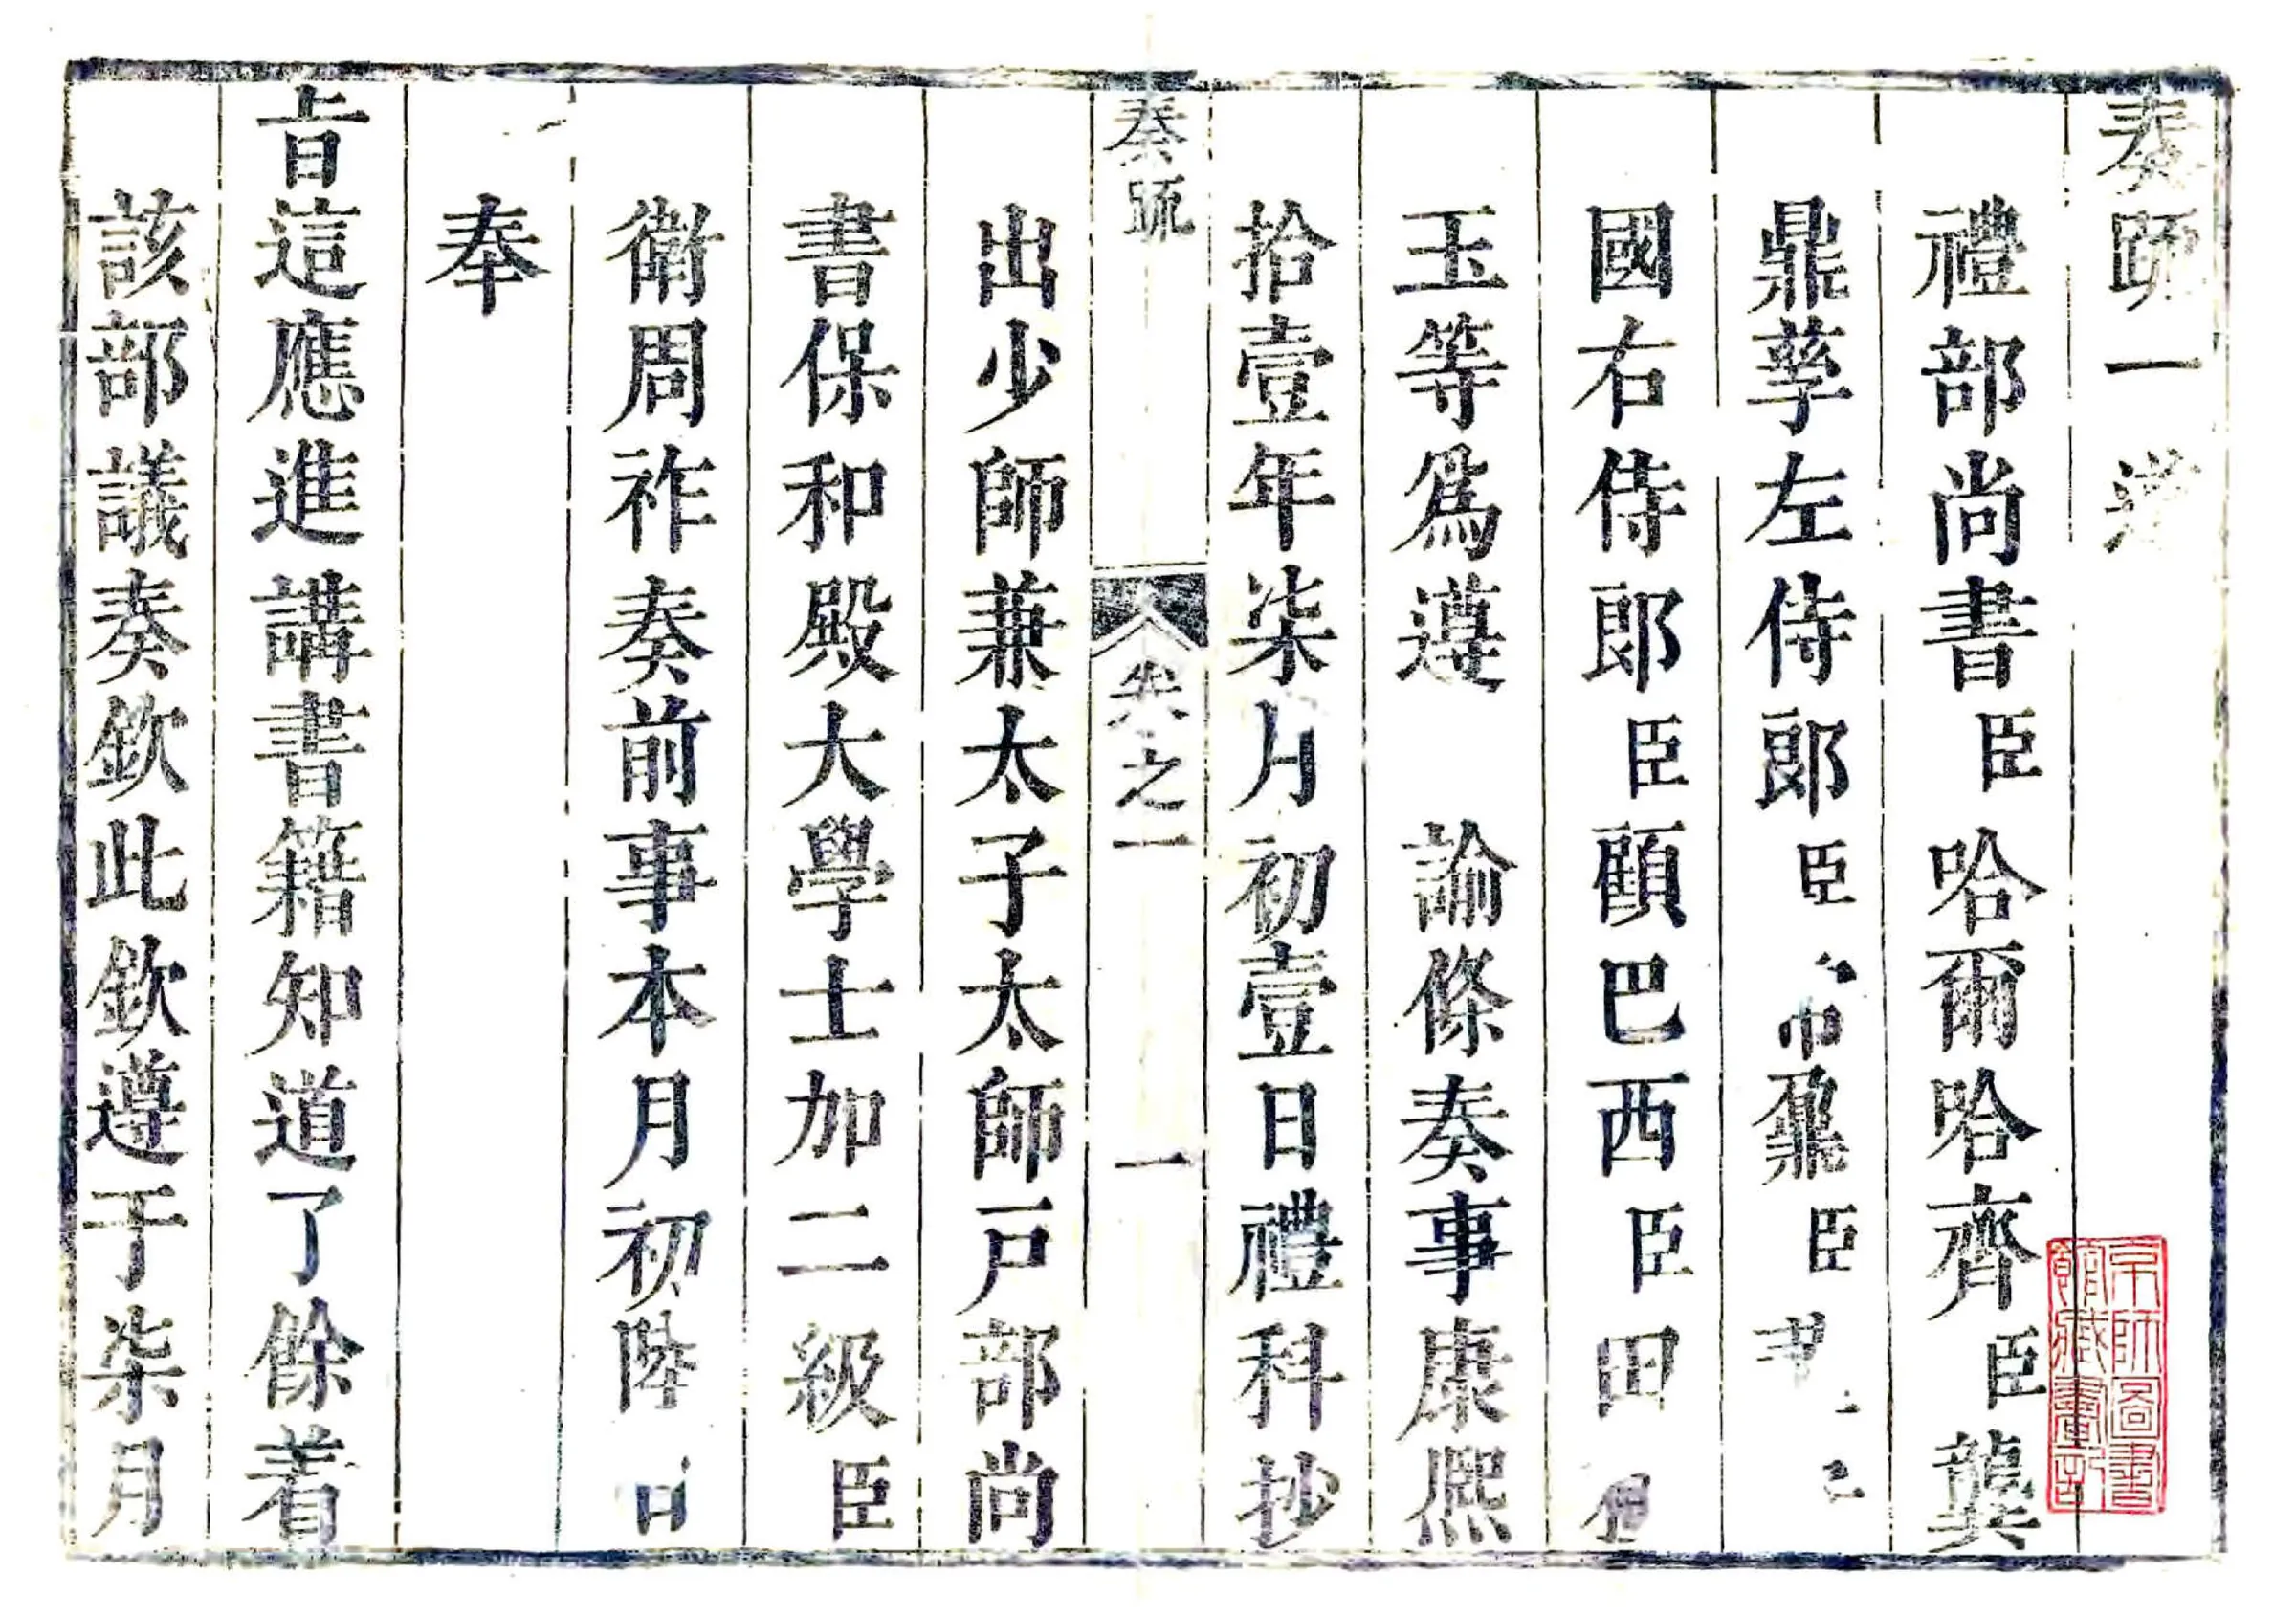 奏疏一道
禮部尚書臣哈爾哈齊臣龔
鼎孳左侍郎臣 鼐臣
國右侍郎臣顧巴西臣田
玉等爲遵 諭條奏事康熙
拾壹年柒月初壹日禮科抄
奏疏 卷之一 一
出少師兼太子太師戸部尚
書保和殿大學士加二級臣
衛周祚奏前事本月初陸日
奉
旨這應進講書籍知道了餘着
該部議奏欽此欽遵于柒月
京師圖書
館藏書記